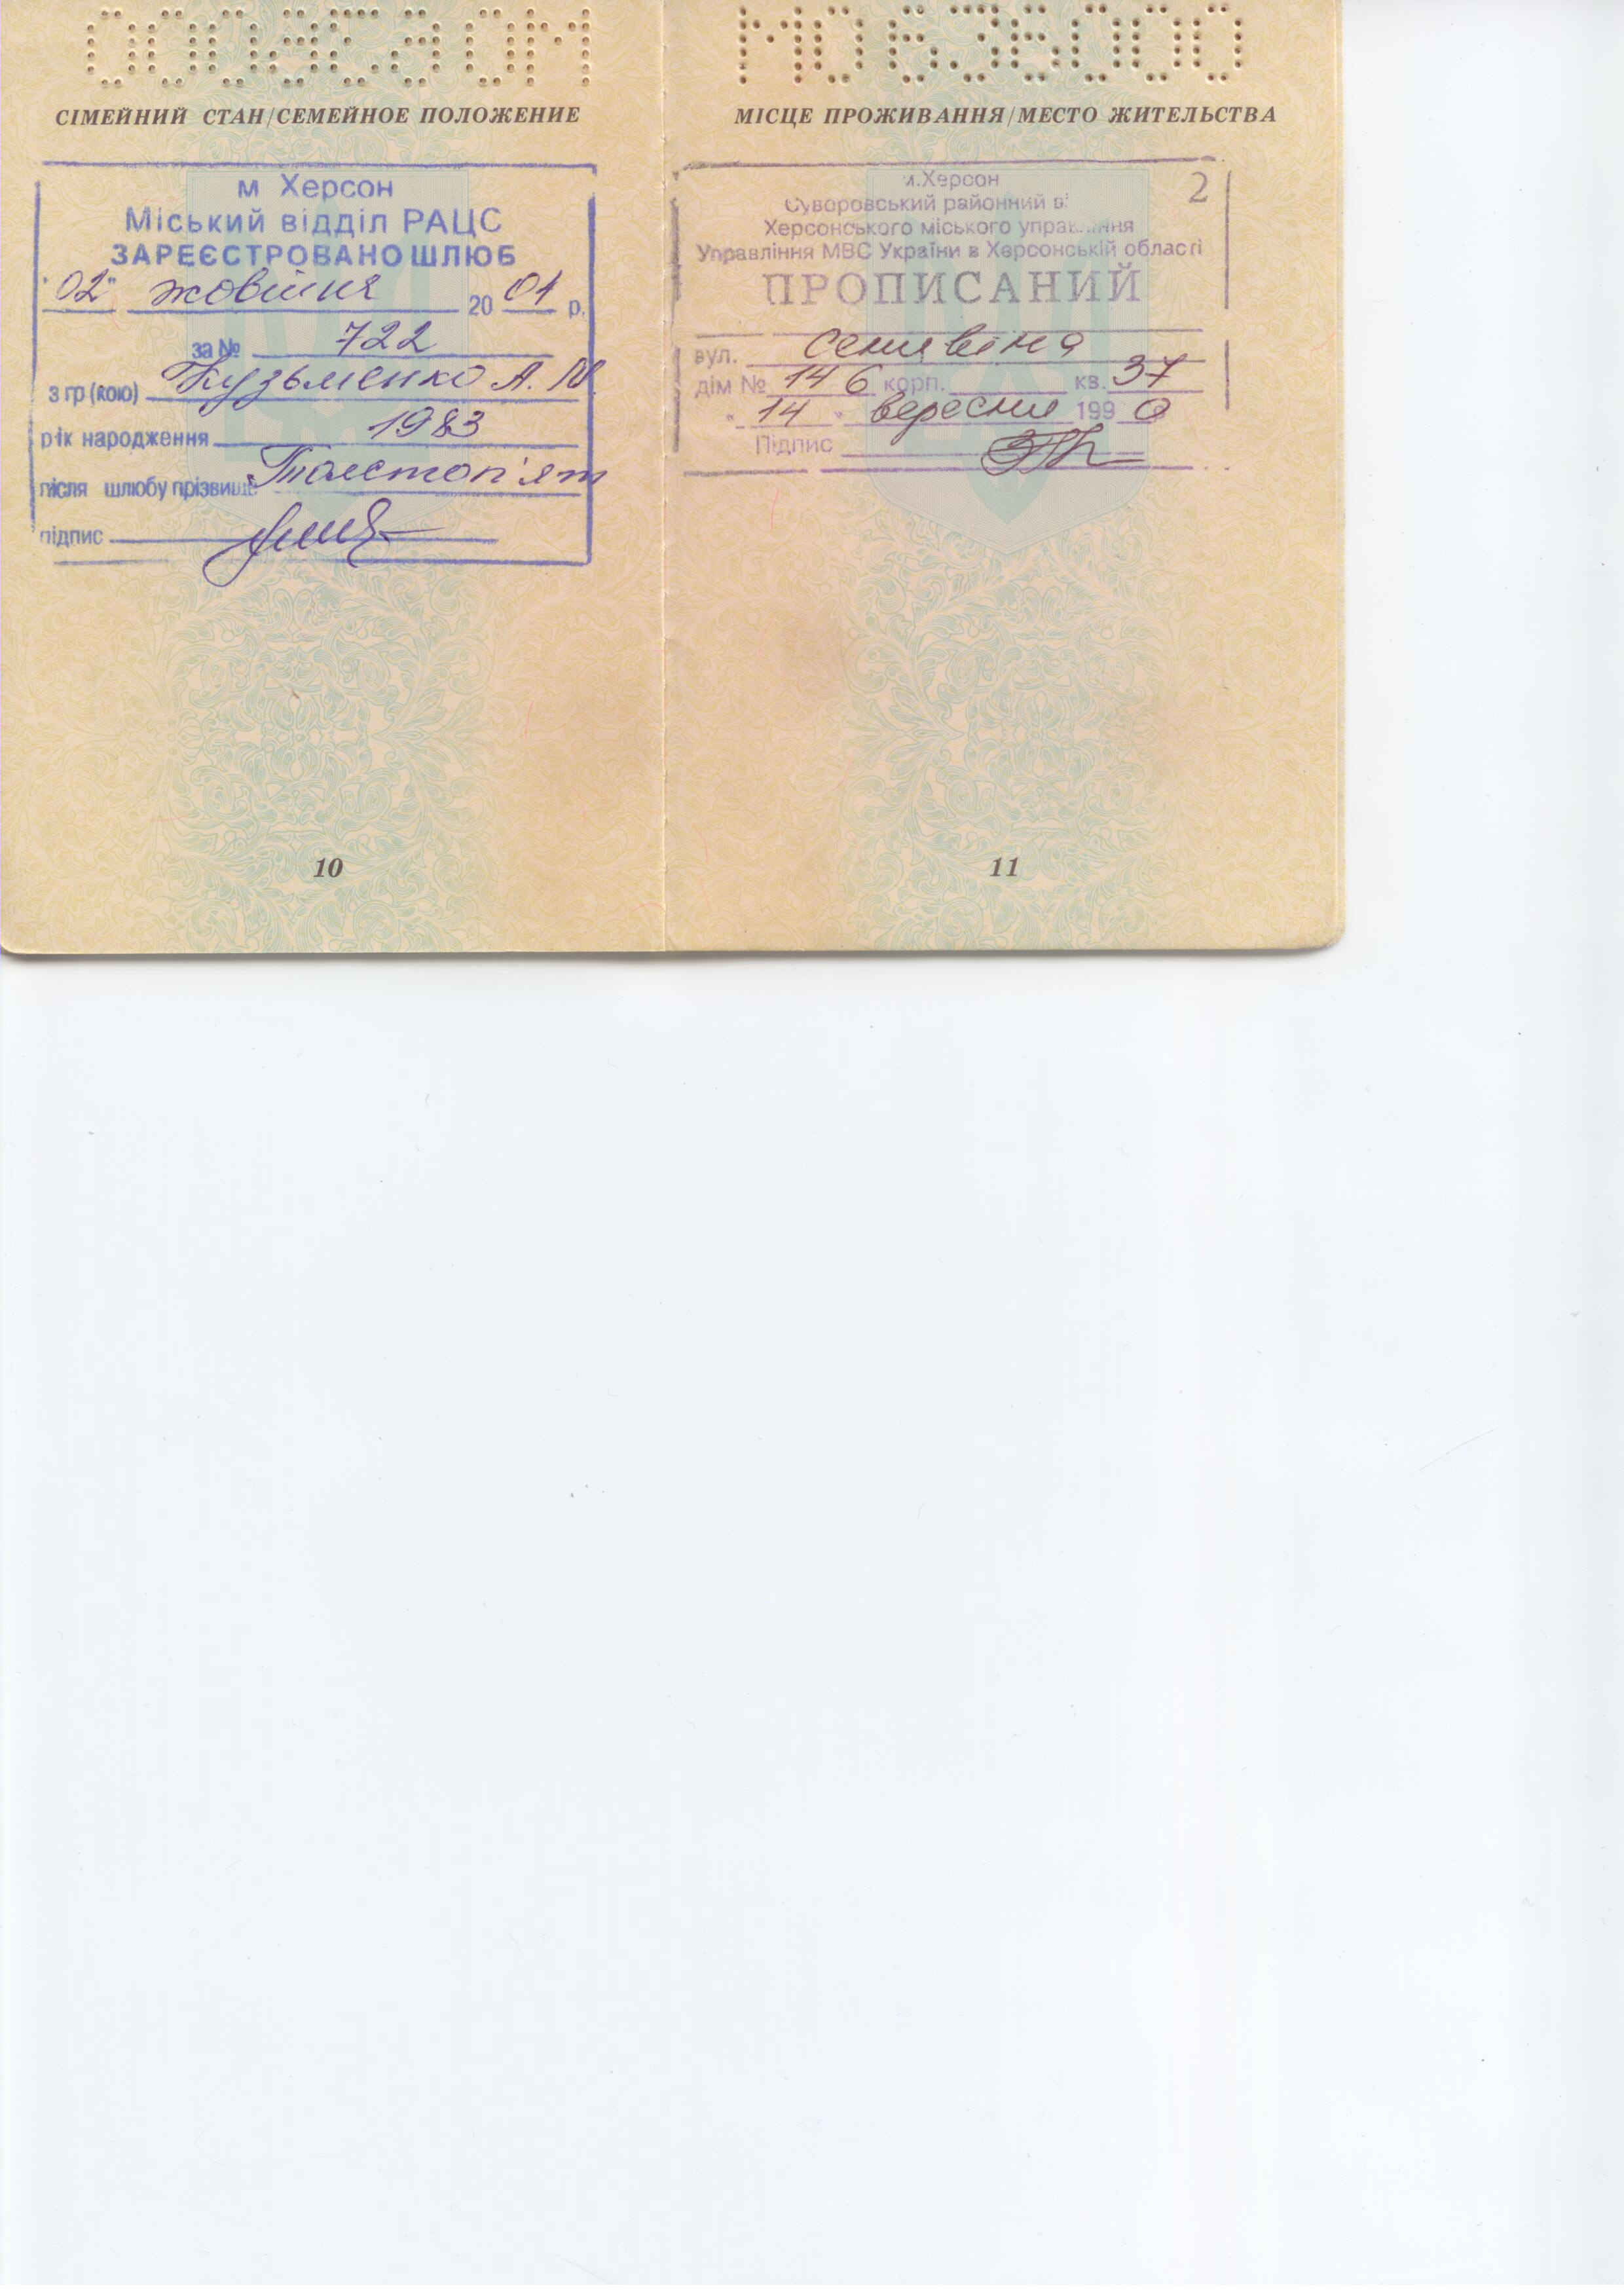 МО636000
СІМЕЙНИЙ СТАН/СЕМЕЙНОЕ ПОЛОЖЕНИЕ
м Херсон
Міський відділ РАЦС
ЗАРЕЄСТРОВАНО ШЛЮБ
"02" жовтня 2001 р.
за № 722
з гр (кою) Кузьменко А. М
рік народження 1983
після шлюбу прізвище Толстоп'ят
підпис
10
МО636000
МІСЦЕ ПРОЖИВАННЯ/МЕСТО ЖИТЕЛЬСТВА
м.Херсон
2
Суворовський районний ві
Херсонського міського управління
Управління МВС України в Херсонській області
ПРОПИСАНИЙ
вул.
дім № 146 корп. кв. 37
"14" вересня 1990
Підпис
11